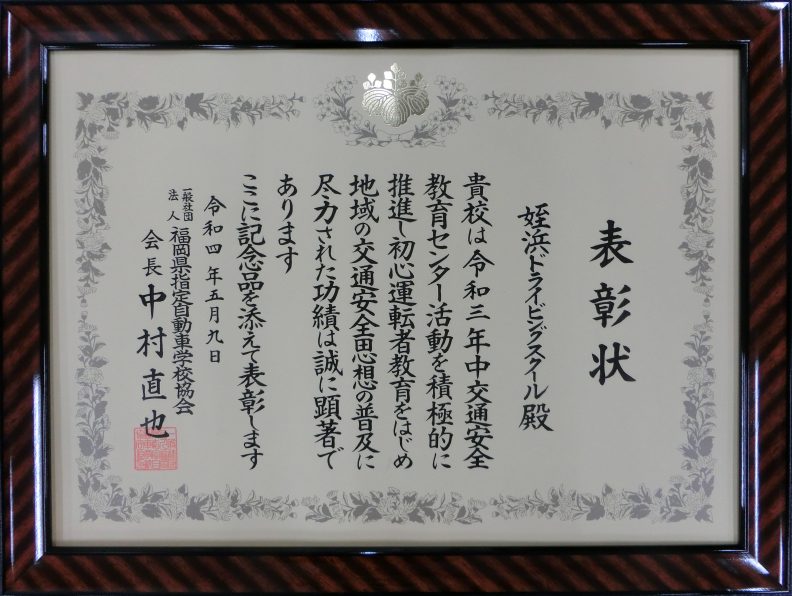 表彰状
姪浜ドライビングスクール殿
貴校は令和三年中交通安全
教育センター活動を積極的に
推進し初心運転者教育をはじめ
地域の交通安全思想の普及に
尽力された功績は誠に顕著で
あります
ここに記念品を添えて表彰します
令和四年五月九日
一般社団法人福岡県指定自動車学校協会
会長中村直也